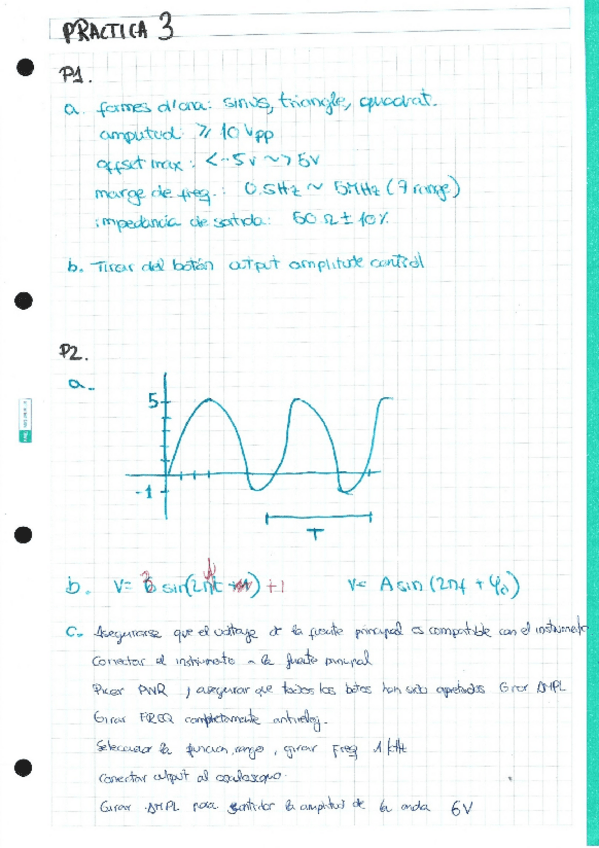 PRACTICA 3
P1.
a. formes d'ona: sinus, triangle, quadrat.
amplitud: ≥ 10 Vpp
offset max: <-5v ~ >5v
marge de freq.: 0.5Hz ~ 5MHz (7 range)
impedancia de sortida: 50 Ω ± 10%
b. Tirar del botón output amplitude control
P2.
a.
5
-1
T
b. V= 3 sin(2π t) +1 V= A sin (2πf + φ0)
C. Asegurarse que el voltaje de la fuente principal es compatible con el instrumento
Conectar el instrumento a la fuente principal
Picar PWR y asegurar que todos los botes han sido apretados Girar AMPL
Girar FREQ completamente antireloj.
Seleccionar la funcion, range, girar Freq 1 kHz
Conectar output al
Girar AMPL para la amplitud de la onda 6V